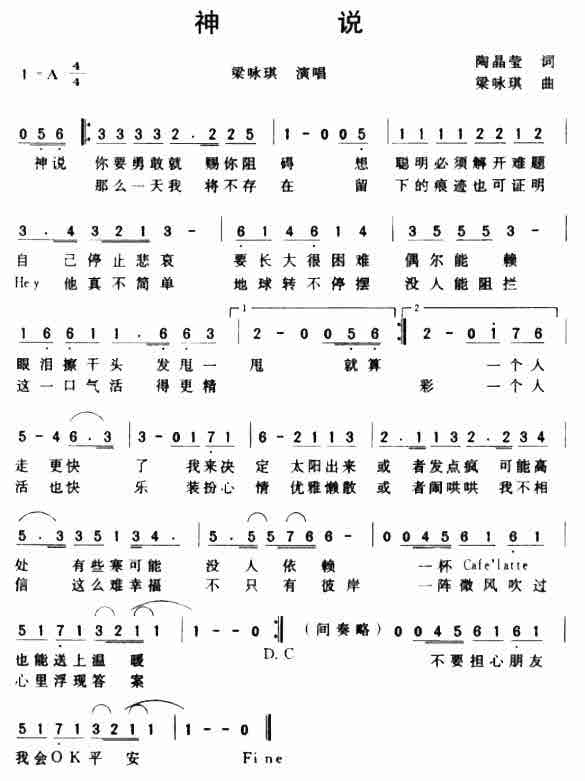 神 说
陶晶莹 词
1=A 4/4 梁咏琪 演唱
梁咏琪 曲
0 5 6 ‖: 3 3 3 3 2 . 2 2 5 | 1 - 0 0 5 | 1 1 1 1 2 2 1 2 |
神说 你要勇敢就 赐你阻 碍 想 聪明必须解开难题
那么一天我 将不存 在 留 下的痕迹也可证明
3 . 4 3 2 1 3 - | 6 1 4 6 1 4 | 3 5 5 5 3 - |
自 己停止悲哀 要长大很困难 偶尔能 赖
Hey 他真不简单 地球转不停摆 没人能阻拦
1 6 6 1 1 . 6 6 3 | 1 2 - 0 0 5 6 :‖ 2 2 - 0 1 7 6 |
眼泪擦干头 发甩一 甩 就算 一个人
这一口气活 得更精 彩 一个人
5 - 4 6 . 3 | 3 - 0 1 7 1 | 6 - 2 1 1 3 | 2 . 1 1 3 2 . 2 3 4 |
走 更快 了 我来决 定 太阳出来 或 者发点疯 可能高
活 也快 乐 装扮心 情 优雅懒散 或 者闹哄哄 我不相
5 . 3 3 5 1 3 4 . | 5 . 5 5 7 6 6 - | 0 0 4 5 6 1 6 1 |
处 有些寒可能 没 人 依 赖 一杯 Cafe'latte
信 这么难幸福 不 只 有 彼 岸 一阵微风吹过
5 1 7 1 3 2 1 1 | 1 - 0 0 :‖ (间奏略) 0 0 4 5 6 1 6 1 |
也能送上温 暖 D.C 不要担心朋友
心里浮现答 案
5 1 7 1 3 2 1 1 | 1 - 0 ‖
我会OK平 安 Fine